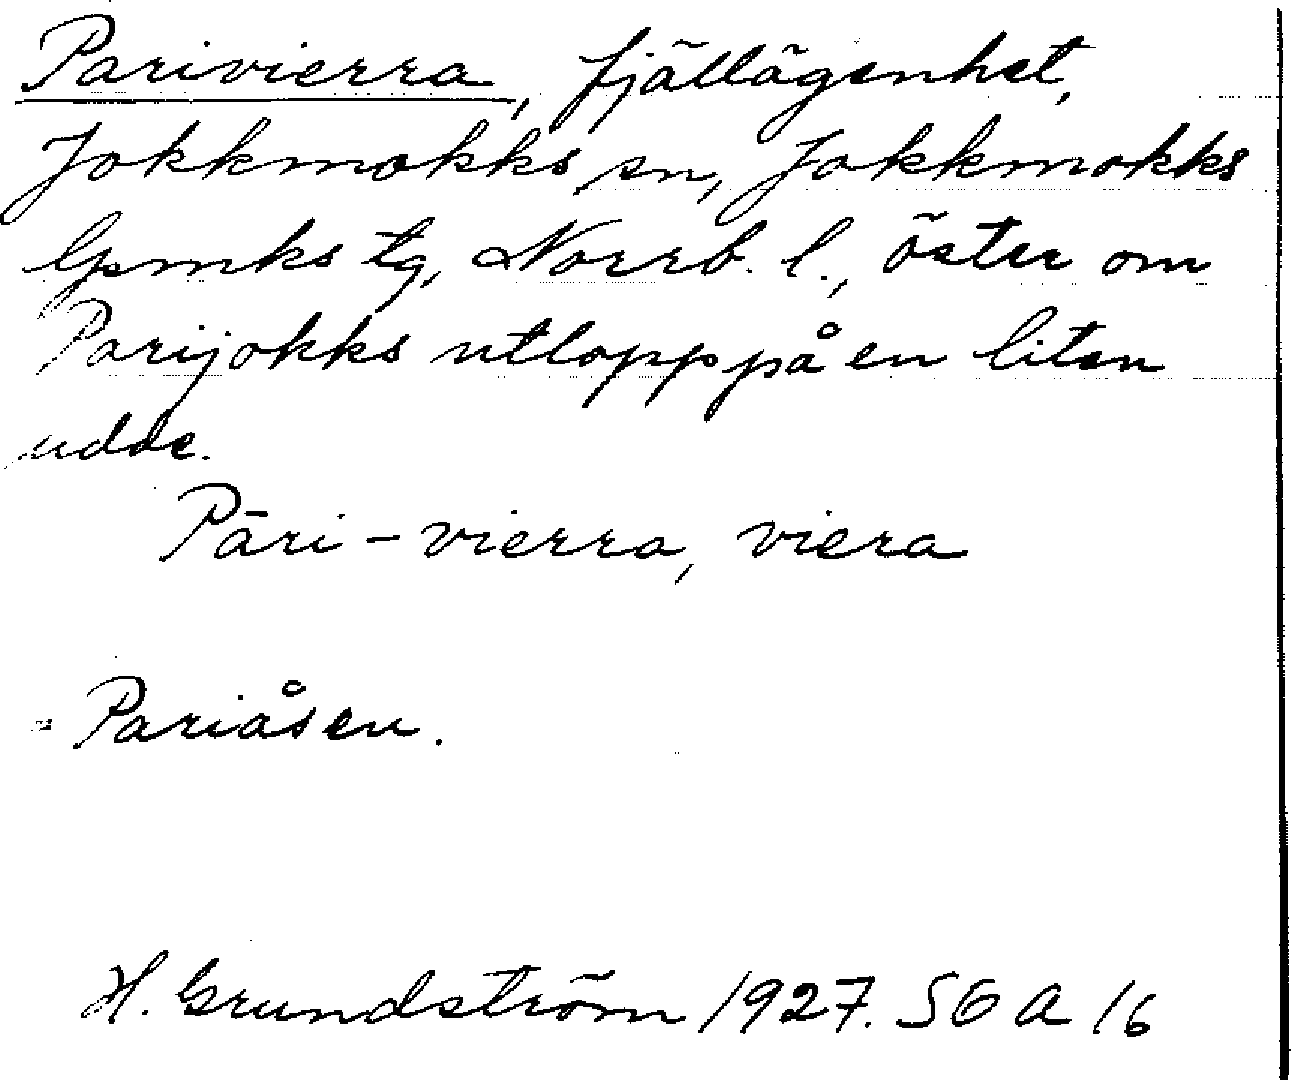 Parivierra, fjällägenhet,
Jokkmokks sn, Jokkmokks
lpmks tg, Norrb. l., öster om
Parijokks utlopp på en liten
udde.
Pāri-vierra, viera
= Pariåsen.
H. Grundström 1927. SOA 16